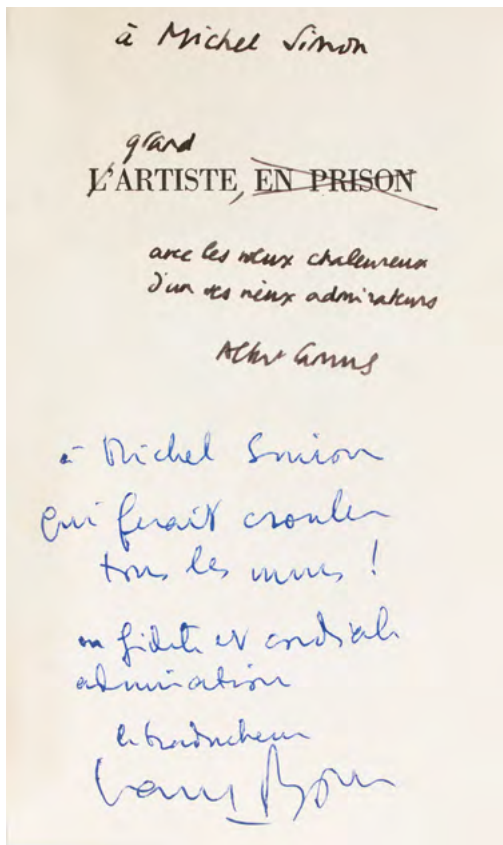 à Michel Simon
grand
L'ARTISTE, EN PRISON
avec les vœux chaleureux
d'un des vieux admirateurs
Albert Camus
à Michel Simon
qui ferait crouler
tous les murs !
en fidèle et cordiale
admiration
le traducteur